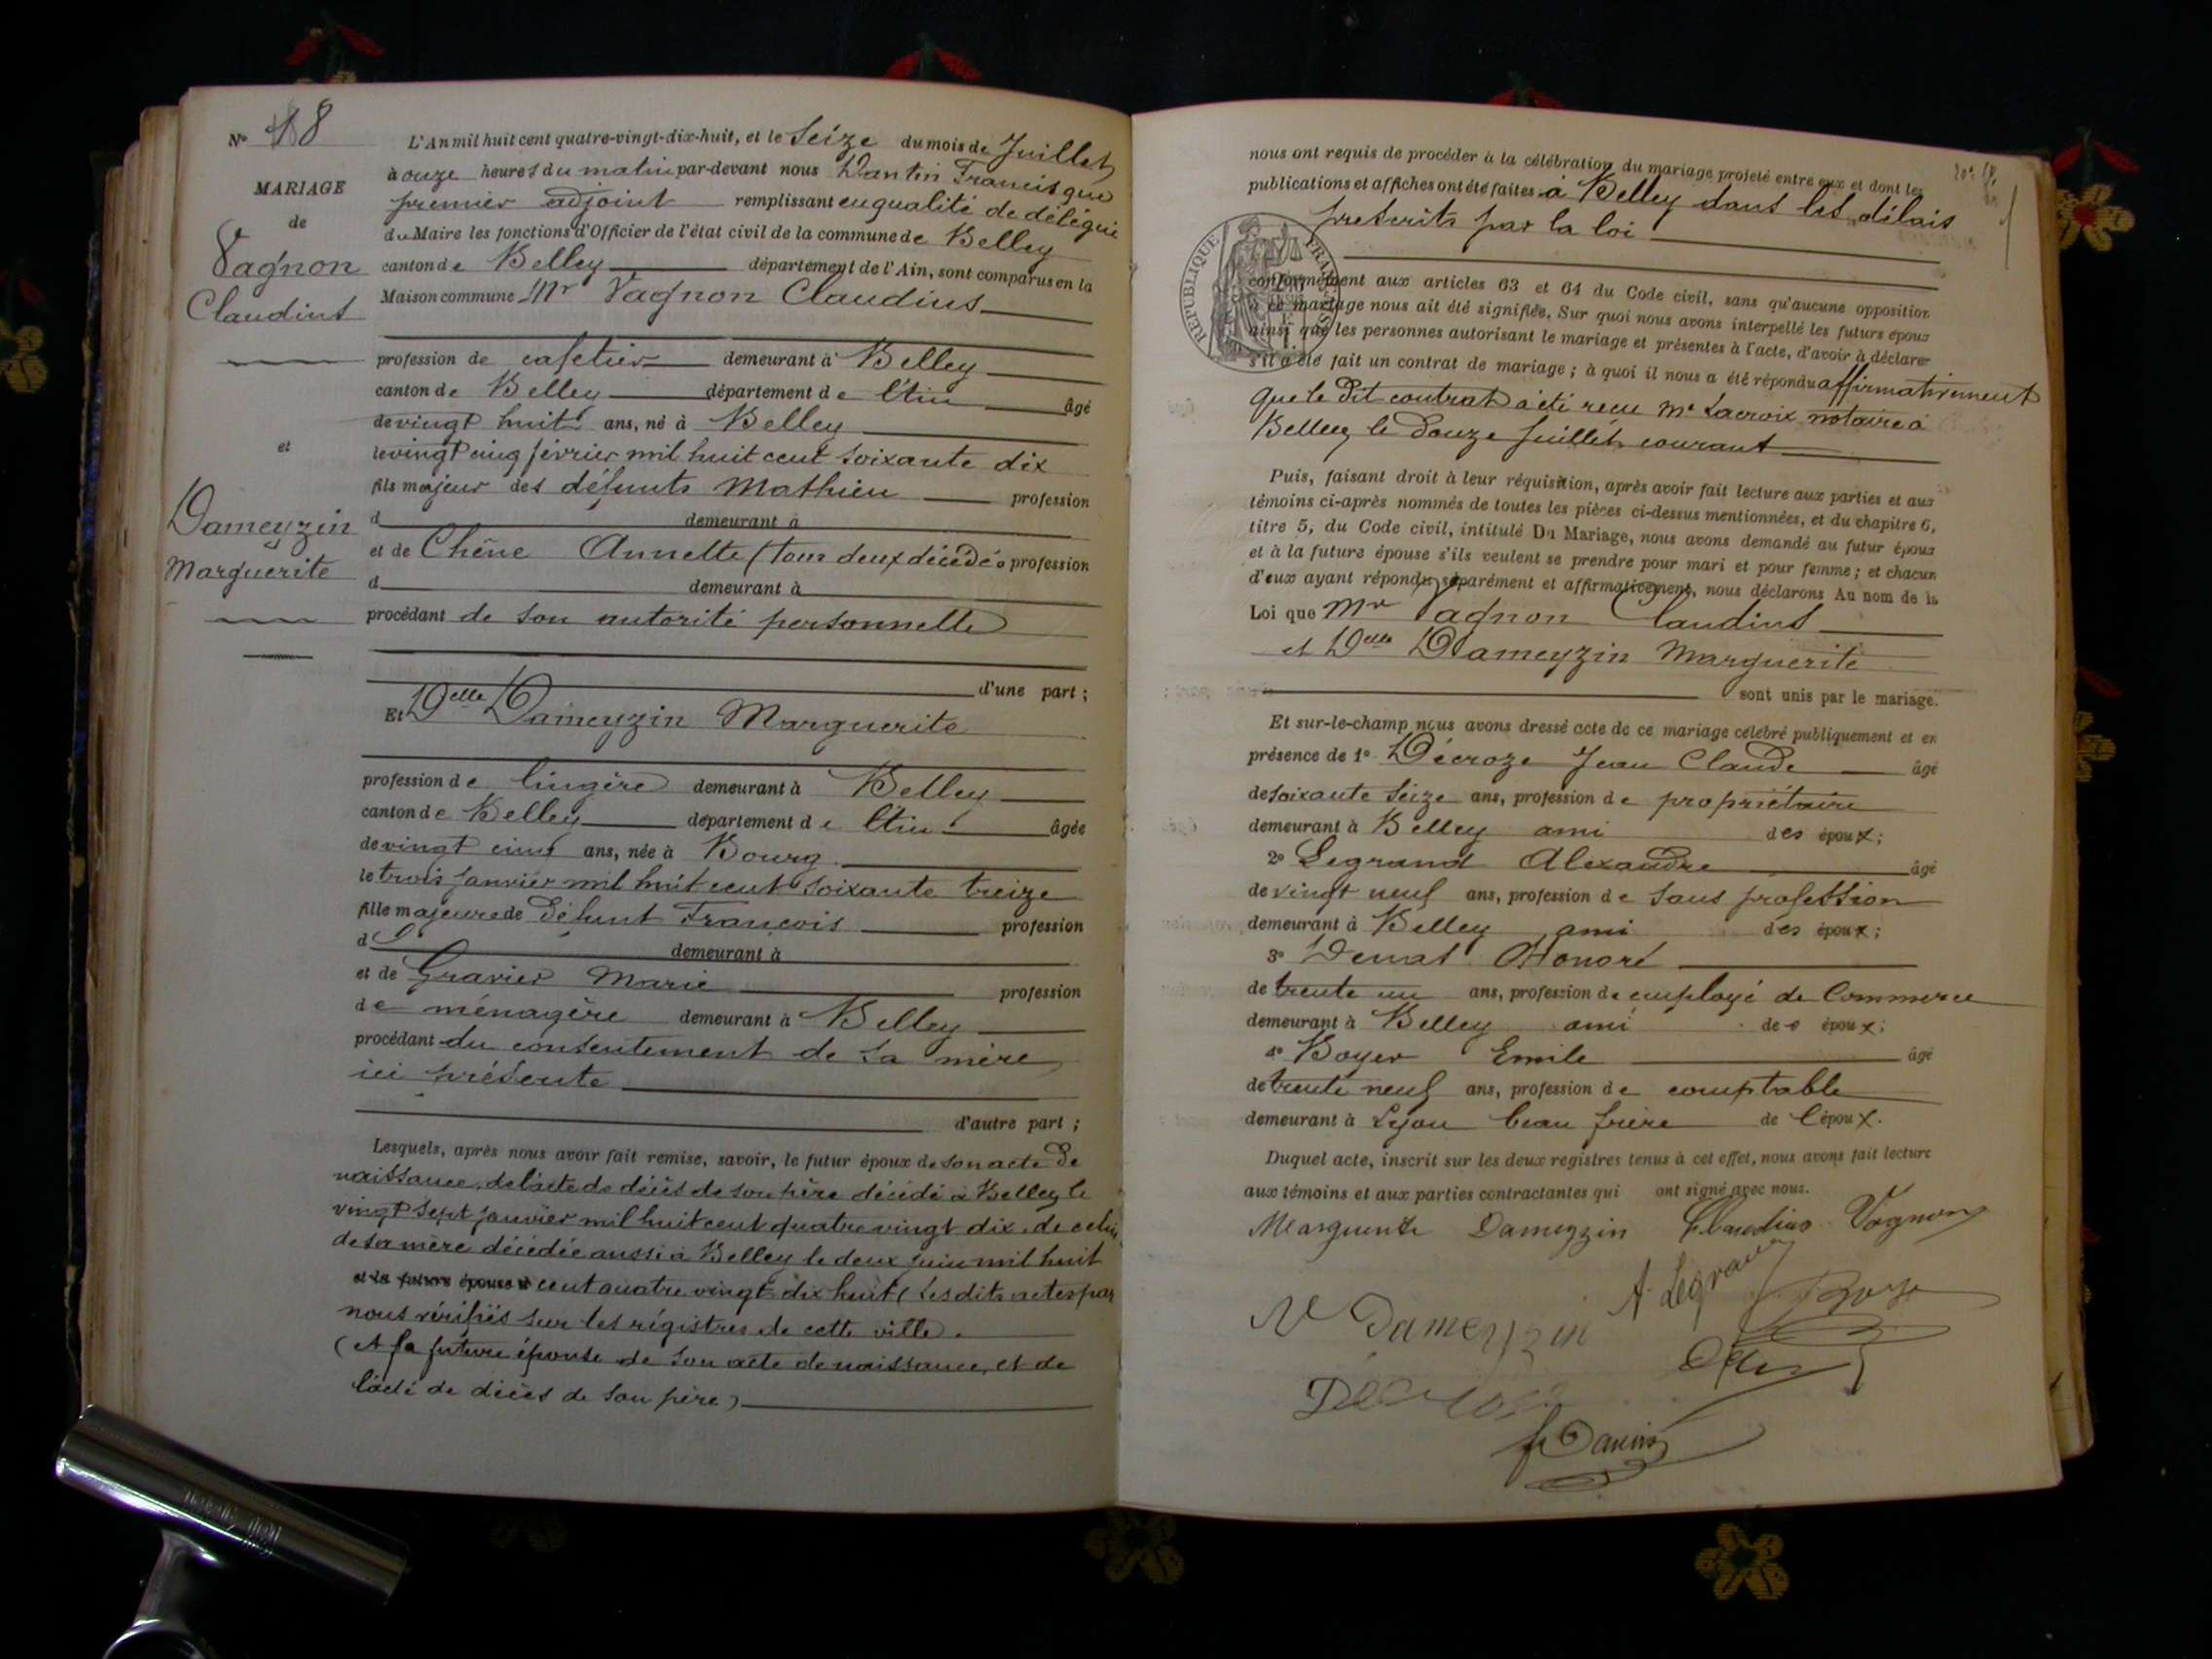 N° 18
MARIAGE
de
Vagnon
Claudius
et
Dameyzin
Marguerite
L'An mil huit cent quatre-vingt-dix-huit, et le Seize du mois de Juillet
à onze heures du matin par-devant nous Dantin Francisque
premier adjoint remplissant en qualité de délégué
du Maire les fonctions d'Officier de l'état civil de la commune de Belley
canton de Belley département de l'Ain, sont comparus en la
Maison commune Mr Vagnon Claudius
profession de cafetier demeurant à Belley
canton de Belley département de l'Ain âgé
de vingt huit ans, né à Belley
le vingt cinq février mil huit cent soixante dix
fils majeur des défunts Mathieu profession
d demeurant à
et de Chêne Annette (tous deux décédés profession
d demeurant à
procédant de son autorité personnelle
d'une part ;
Et Delle Dameyzin Marguerite
profession de lingère demeurant à Belley
canton de Belley département de l'Ain âgée
de vingt cinq ans, née à Bourg
le trois janvier mil huit cent soixante treize
fille majeure de défunt François profession
d demeurant à
et de Gravier Marie profession
de ménagère demeurant à Belley
procédant du consentement de sa mère
ici présente
d'autre part ;
Lesquels, après nous avoir fait remise, savoir, le futur époux de son acte de
naissance, de l'acte de décès de son père décédé à Belley le
vingt sept janvier mil huit cent quatre vingt dix, de celui
de sa mère décédée aussi à Belley le deux juin mil huit
et la future épouse d cent quatre vingt dix huit (Les dits actes par
nous vérifiés sur les régistres de cette ville.
(et la future épouse de son acte de naissance, et de
l'acte de décès de son père)
nous ont requis de procéder à la célébration du mariage projeté entre eux et dont les
publications et affiches ont été faites à Belley dans les délais
prescrits par la loi
RÉPUBLIQUE FRANÇAISE
conformément aux articles 63 et 64 du Code civil, sans qu'aucune opposition
à ce mariage nous ait été signifiée. Sur quoi nous avons interpellé les futurs époux
ainsi que les personnes autorisant le mariage et présentes à l'acte, d'avoir à déclarer
s'il a été fait un contrat de mariage ; à quoi il nous a été répondu affirmativement
que le dit contrat a été reçu Me Lacroix notaire à
Belley le douze juillet courant
Puis, faisant droit à leur réquisition, après avoir fait lecture aux parties et aux
témoins ci-après nommés de toutes les pièces ci-dessus mentionnées, et du chapitre 6,
titre 5, du Code civil, intitulé Du Mariage, nous avons demandé au futur époux
et à la future épouse s'ils veulent se prendre pour mari et pour femme ; et chacun
d'eux ayant répondu séparément et affirmativement, nous déclarons Au nom de la
Loi que Mr Vagnon Claudius
et Delle Dameyzin Marguerite
sont unis par le mariage.
Et sur-le-champ nous avons dressé acte de ce mariage célébré publiquement et en
présence de 1° Décroze Jean Claude âgé
de soixante seize ans, profession de propriétaire
demeurant à Belley ami des époux ;
2° Legrand Alexandre âgé
de vingt neuf ans, profession de sans profession
demeurant à Belley ami des époux ;
3° Denat Honoré
de trente un ans, profession de employé de Commerce
demeurant à Belley ami des époux ;
4° Boyer Emile âgé
de trente neuf ans, profession de comptable
demeurant à Lyon beau frère de l'époux.
Duquel acte, inscrit sur les deux registres tenus à cet effet, nous avons fait lecture
aux témoins et aux parties contractantes qui ont signé avec nous.
Marguerite Dameyzin Claudius Vagnon
A. Legrand Boyer
Ve Dameyzin